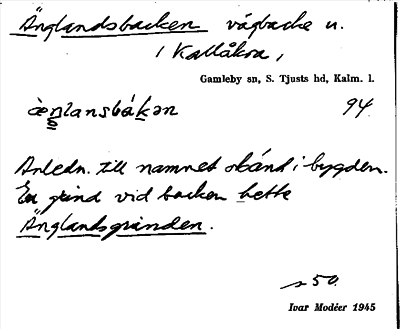 Änglandsbacken vägbacke n.
i Kallåkra,
Gamleby sn, S. Tjusts hd, Kalm. l.
94.
Anledn. till namnet okänd i bygden.
En grind vid backen hette
Änglandsgrinden.
s 50.
Ivar Modéer 1945